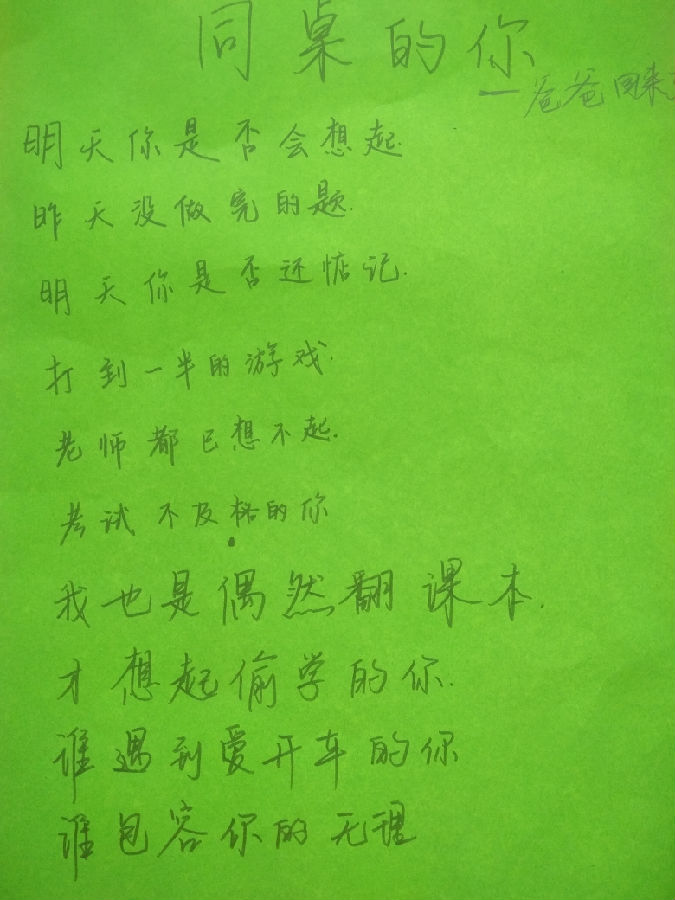 同桌的你
——爸爸回来
明天你是否会想起.
昨天没做完的题.
明天你是否还惦记.
打到一半的游戏.
老师都已想不起.
考试不及格的你
我也是偶然翻课本.
才想起偷学的你.
谁遇到爱开车的你
谁包容你的无理